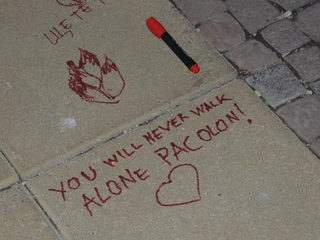 YOU WILL NEVER WALK
ALONE PACOLON!